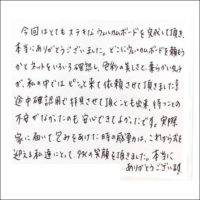 今回はとてもステキなウェルカムボードを完成して頂き、
本当にありがとうございました。どこにウェルカムボードを頼もう
かとネットをいろいろ確認し、色彩の美しさと柔らかい文字
が、私の中ではピンと来て依頼させて頂きました!
途中確認用で拝見させて頂くことも出来、待つことの
不安がなかったのも安心できてよかったです。実際
家に届いて、包みをあけた時の感動は、これから式を
迎える私達にとって、最大の笑顔を頂きました。本当に
ありがとうございます